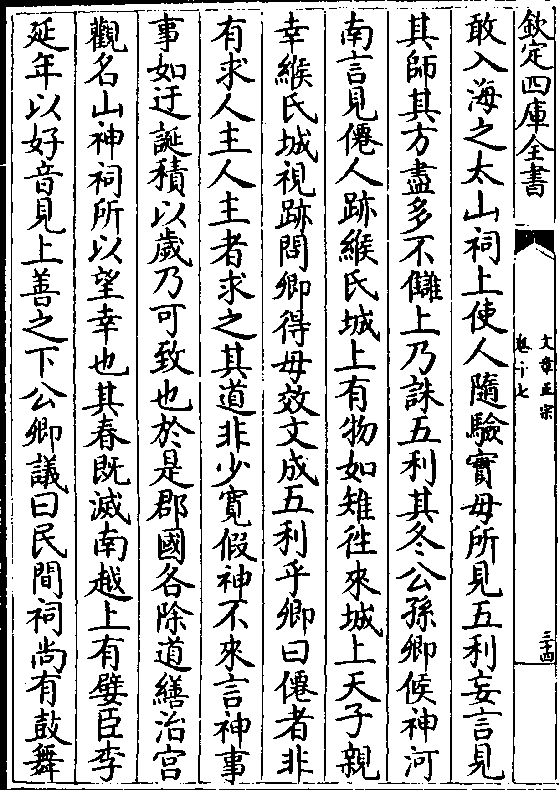 欽定四庫全書
文章正宗
卷十七
三十四
敢入海之太山祠上使人隨驗實毋所見五利妄言見
其師其方盡多不讎上乃誅五利其冬公孫卿候神河
南言見僊人跡緱氏城上有物如雉徃來城上天子親
幸緱氏城視跡問卿得毋效文成五利乎卿曰僊者非
有求人主人主者求之其道非少寛假神不來言神事
事如迂誕積以歲乃可致也於是郡國各除道繕治宫
觀名山神祠所以望幸也其春既滅南越上有嬖臣李
延年以好音見上善之下公卿議曰民間祠尚有鼓舞